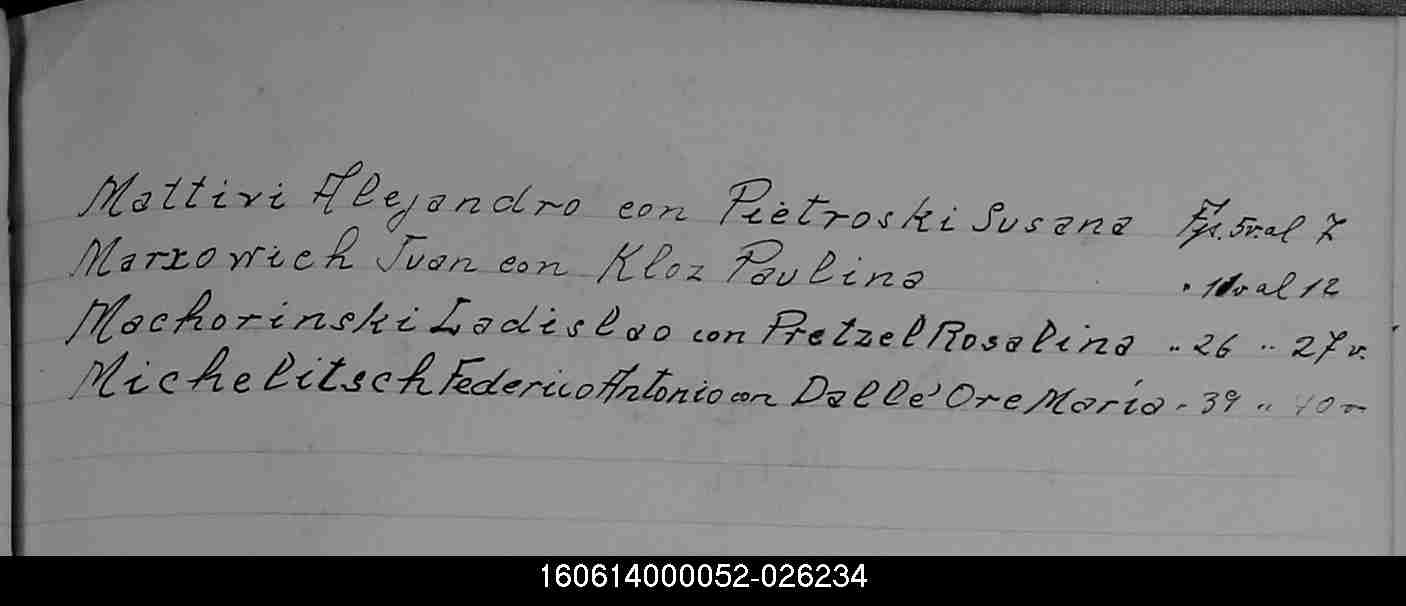 Mattivi Alejandro con Pietroski Susana Fjs. 5v.al 7
Marxowich Juan con Kloz Paulina " 11v al 12
Machorinski Ladislao con Pretzel Rosalina " 26 " 27 v.
Michelitsch Federico Antonio con Dalle' Ore María " 39 " 40
160614000052-026234